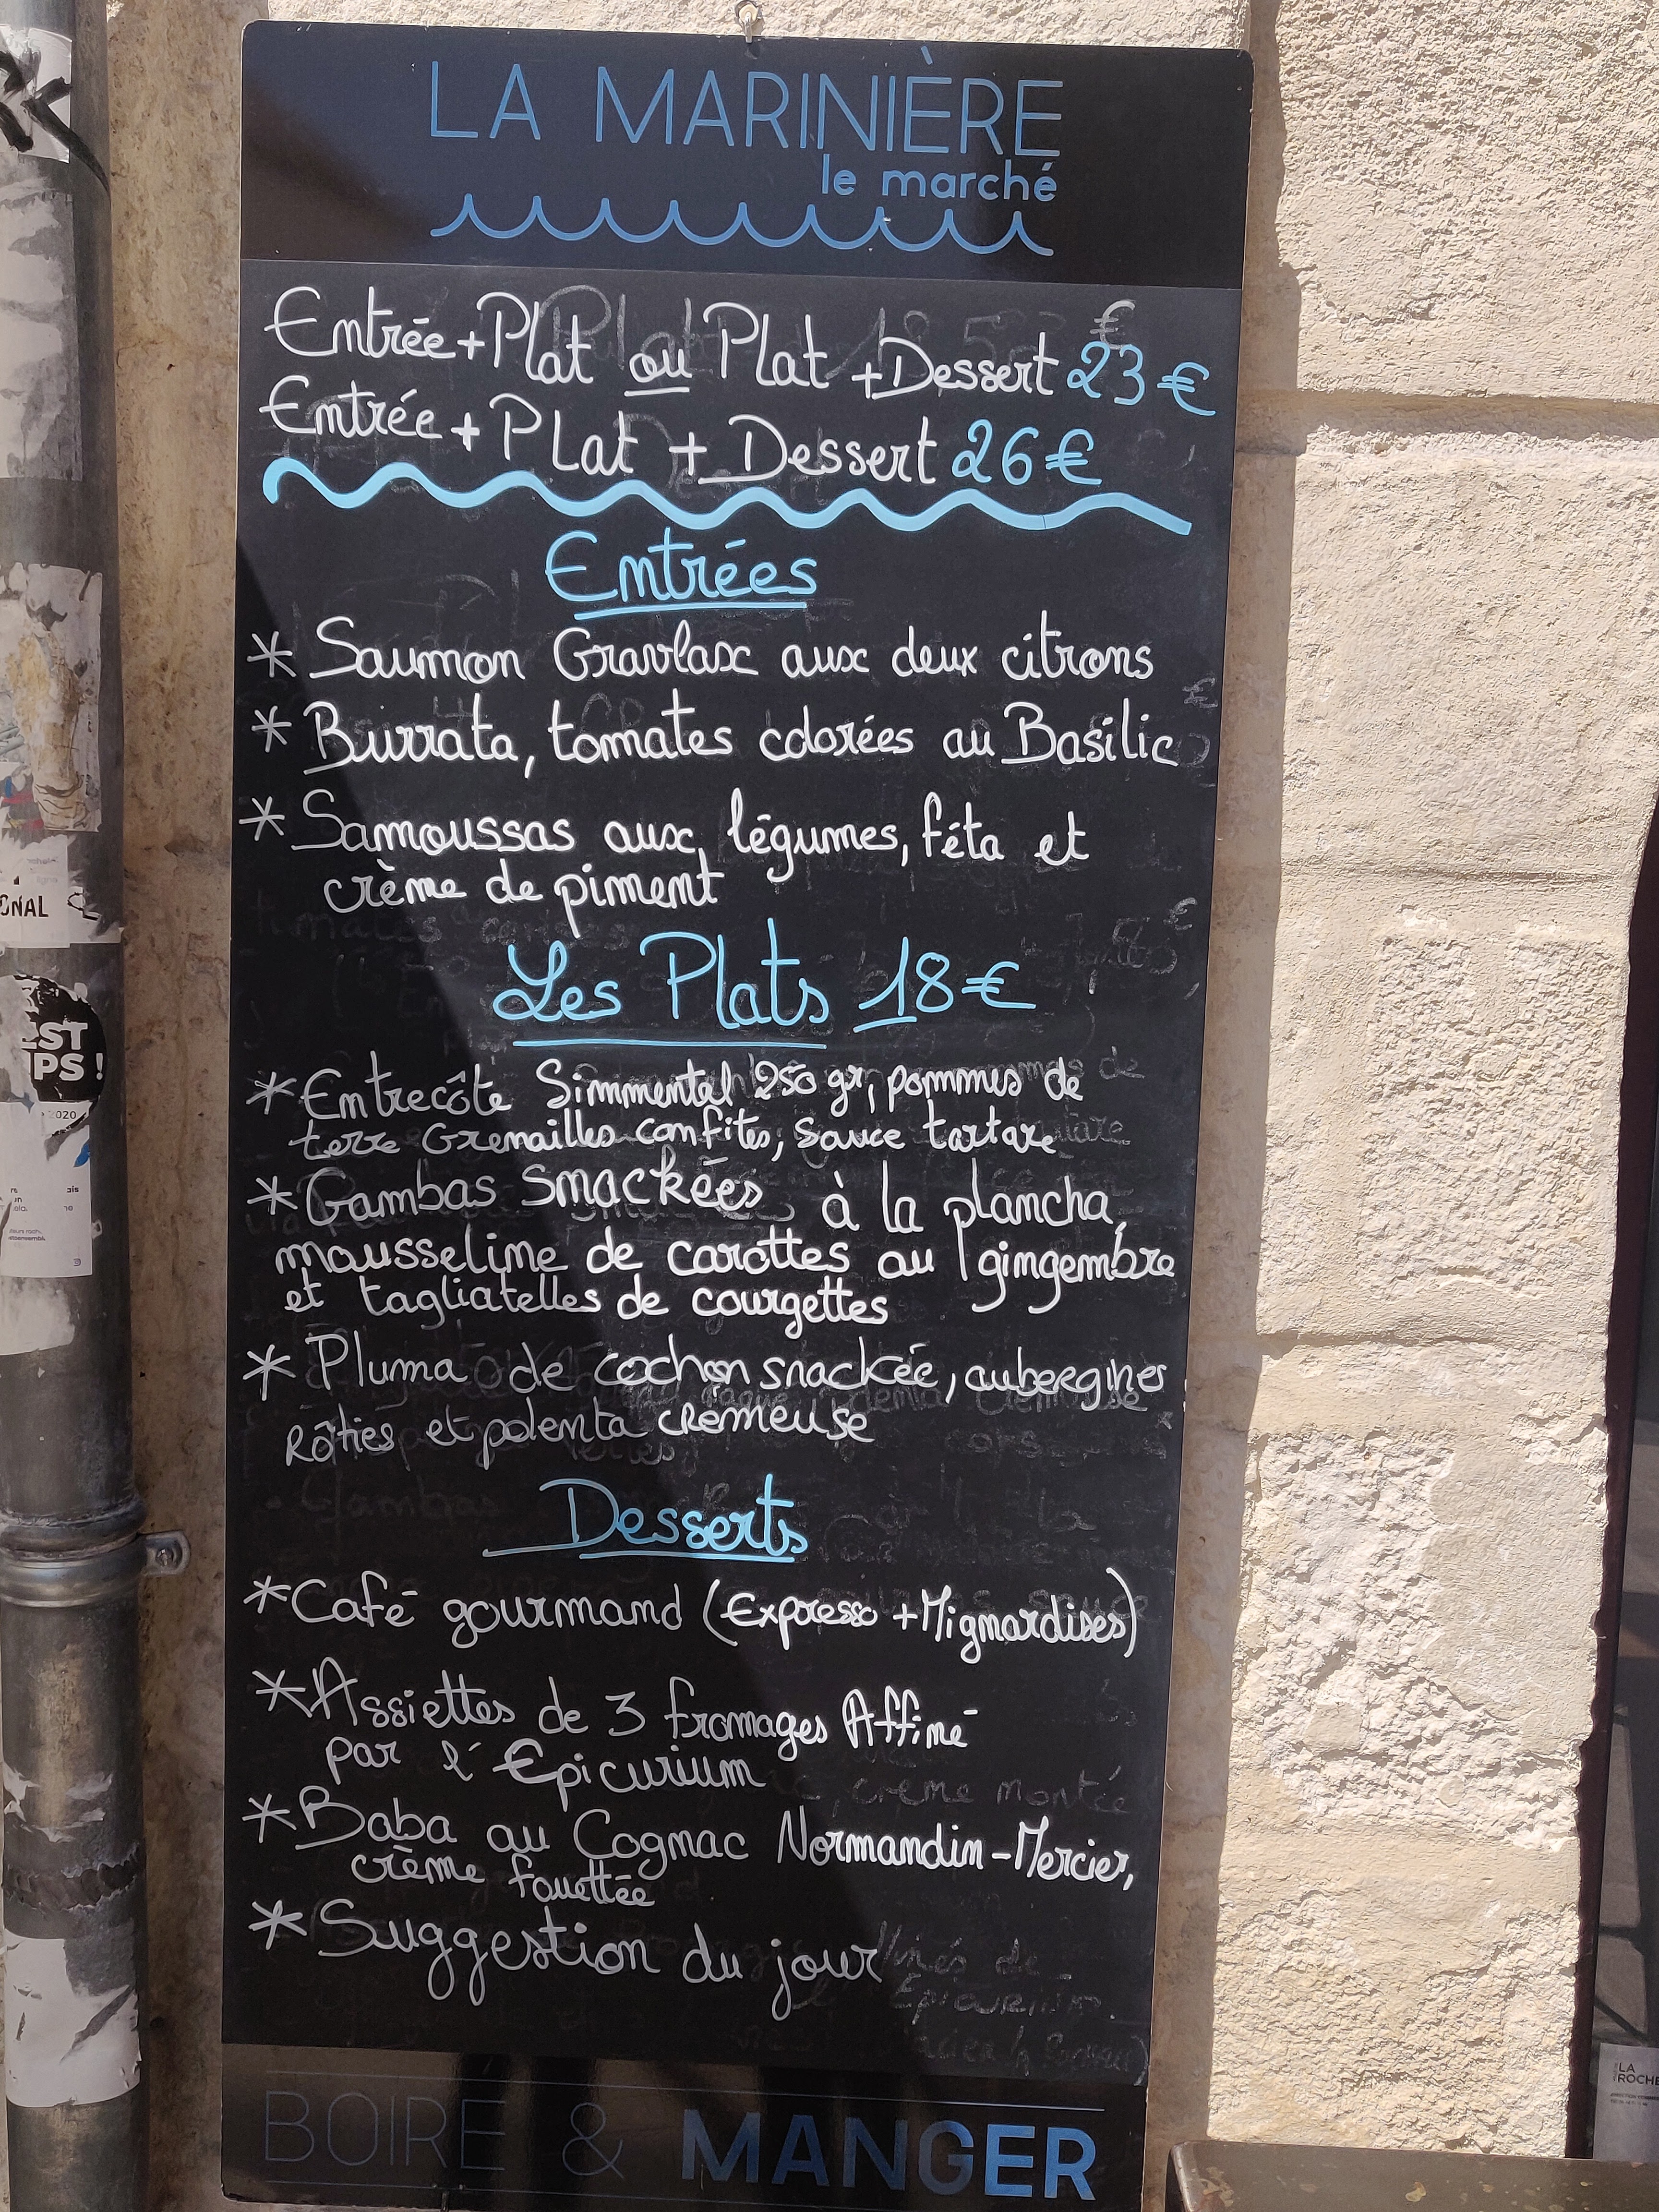 LA MARINIÈRE
le marché
Entrée+Plat ou Plat +Dessert 23€
Entrée + PLat + Dessert 26€
Entrées
* Saumon Gravlax aux deux citrons
* Burrata, tomates colorées au Basilic
* Samoussas aux légumes, féta et
crème de piment
Les Plats 18€
* Entrecôte Simmental 250 gr, pommes de
terre Grenailles confites, sauce tartare
* Gambas Smackées à la plancha,
mousseline de carottes au gingembre
et tagliatelles de courgettes
* Pluma de cochon snackée, aubergines
Rôties et polenta crémeuse
Desserts
* Café gourmand (Expresso + Mignardises)
* Assiettes de 3 fromages Affiné
par l'Epicurium
* Baba au Cognac Normandin-Mercier,
crème fouettée
* Suggestion du jour
BOIRE & MANGER
ONAL
EST
IPS !
2020
LA
ROCHE